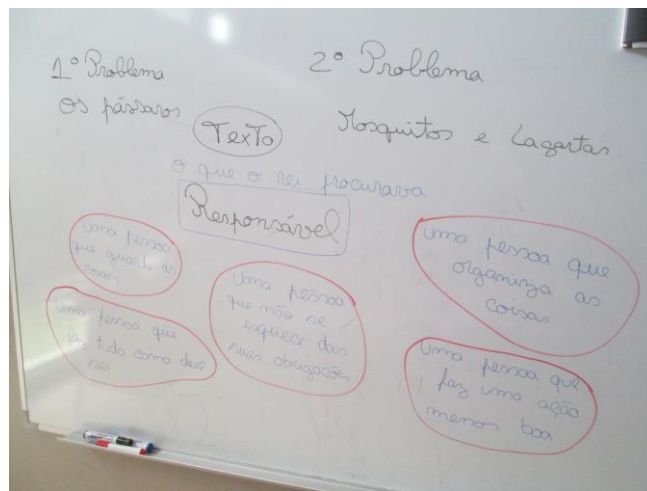 1º Problema
os pássaros
2º Problema
Mosquitos e Lagartas
Texto
o que o rei procurava
Responsável
uma pessoa
que guarda as
coisas
uma pessoa que
faz tudo como deve
ser
uma pessoa
que não se
esquece das
suas obrigações
uma pessoa que
organiza as
coisas
uma pessoa que
faz uma ação
menos boa